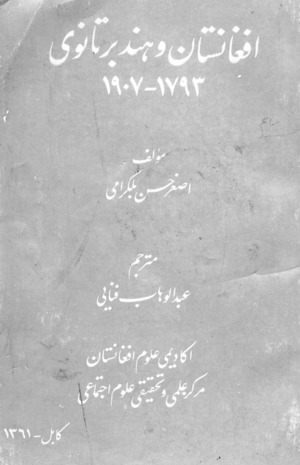 افغانستان و هند برتانوی
۱۷۹۳-۱۹۰۷
مؤلف
اصغر حسن بلگرامی
مترجم
عبدالوهاب فنایی
اکادیمی علوم افغانستان
مرکز علمی و تحقیقی علوم اجتماعی
کابل - ۱۳۶۱